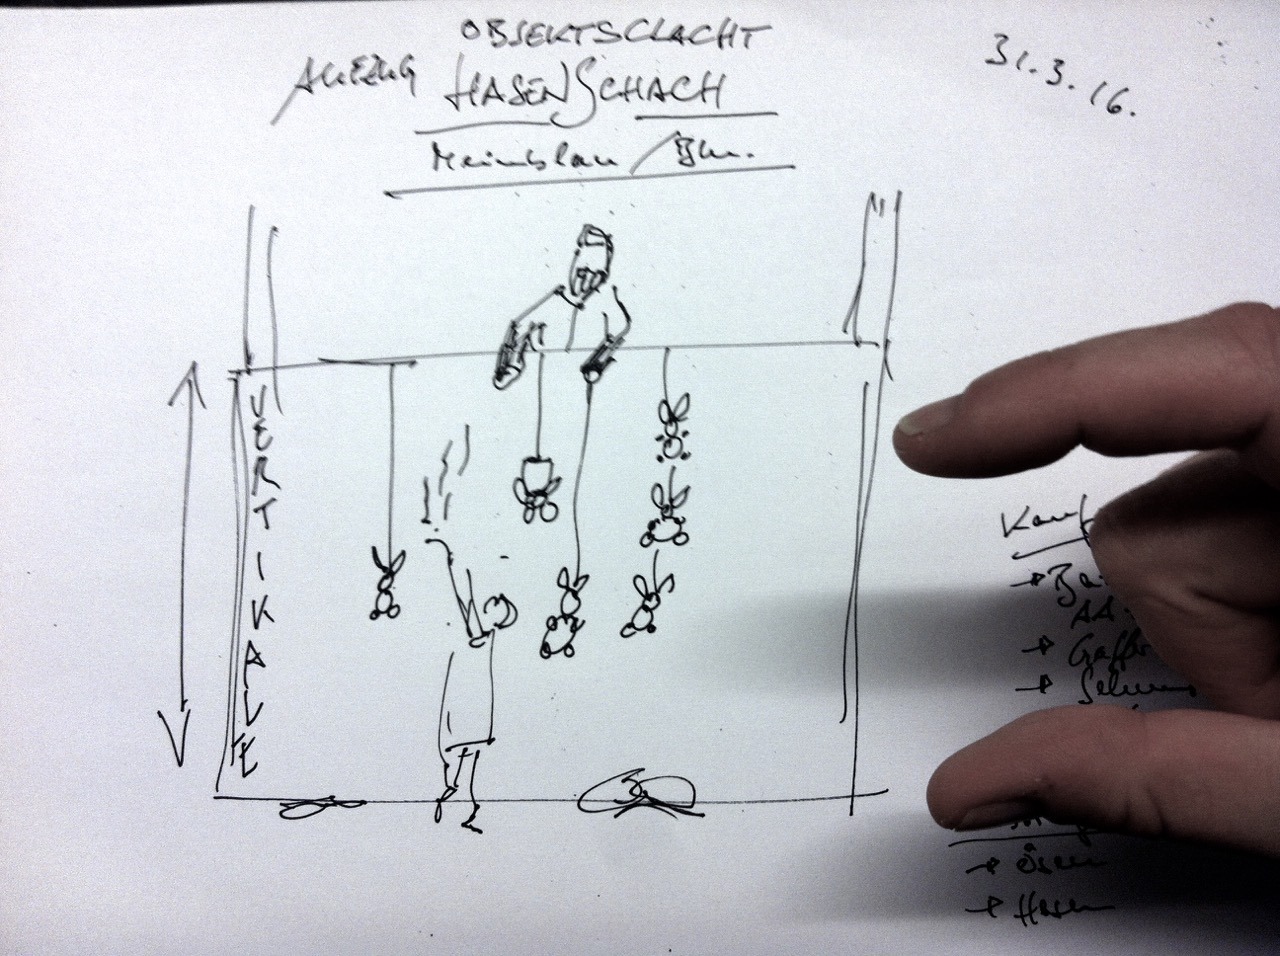 OBJEKTSCLACHT
AUFZUG HASENSCHACH
31.3.16.
Meinblau / Bln.
VERTIKALE
Kauf
→
AA
→ Gaffer
→
→ Ösen
→ Hasen